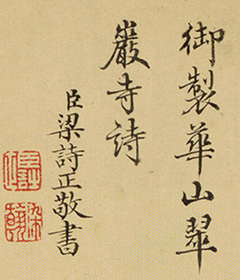 御製華山翠
巖寺詩
臣梁詩正敬書